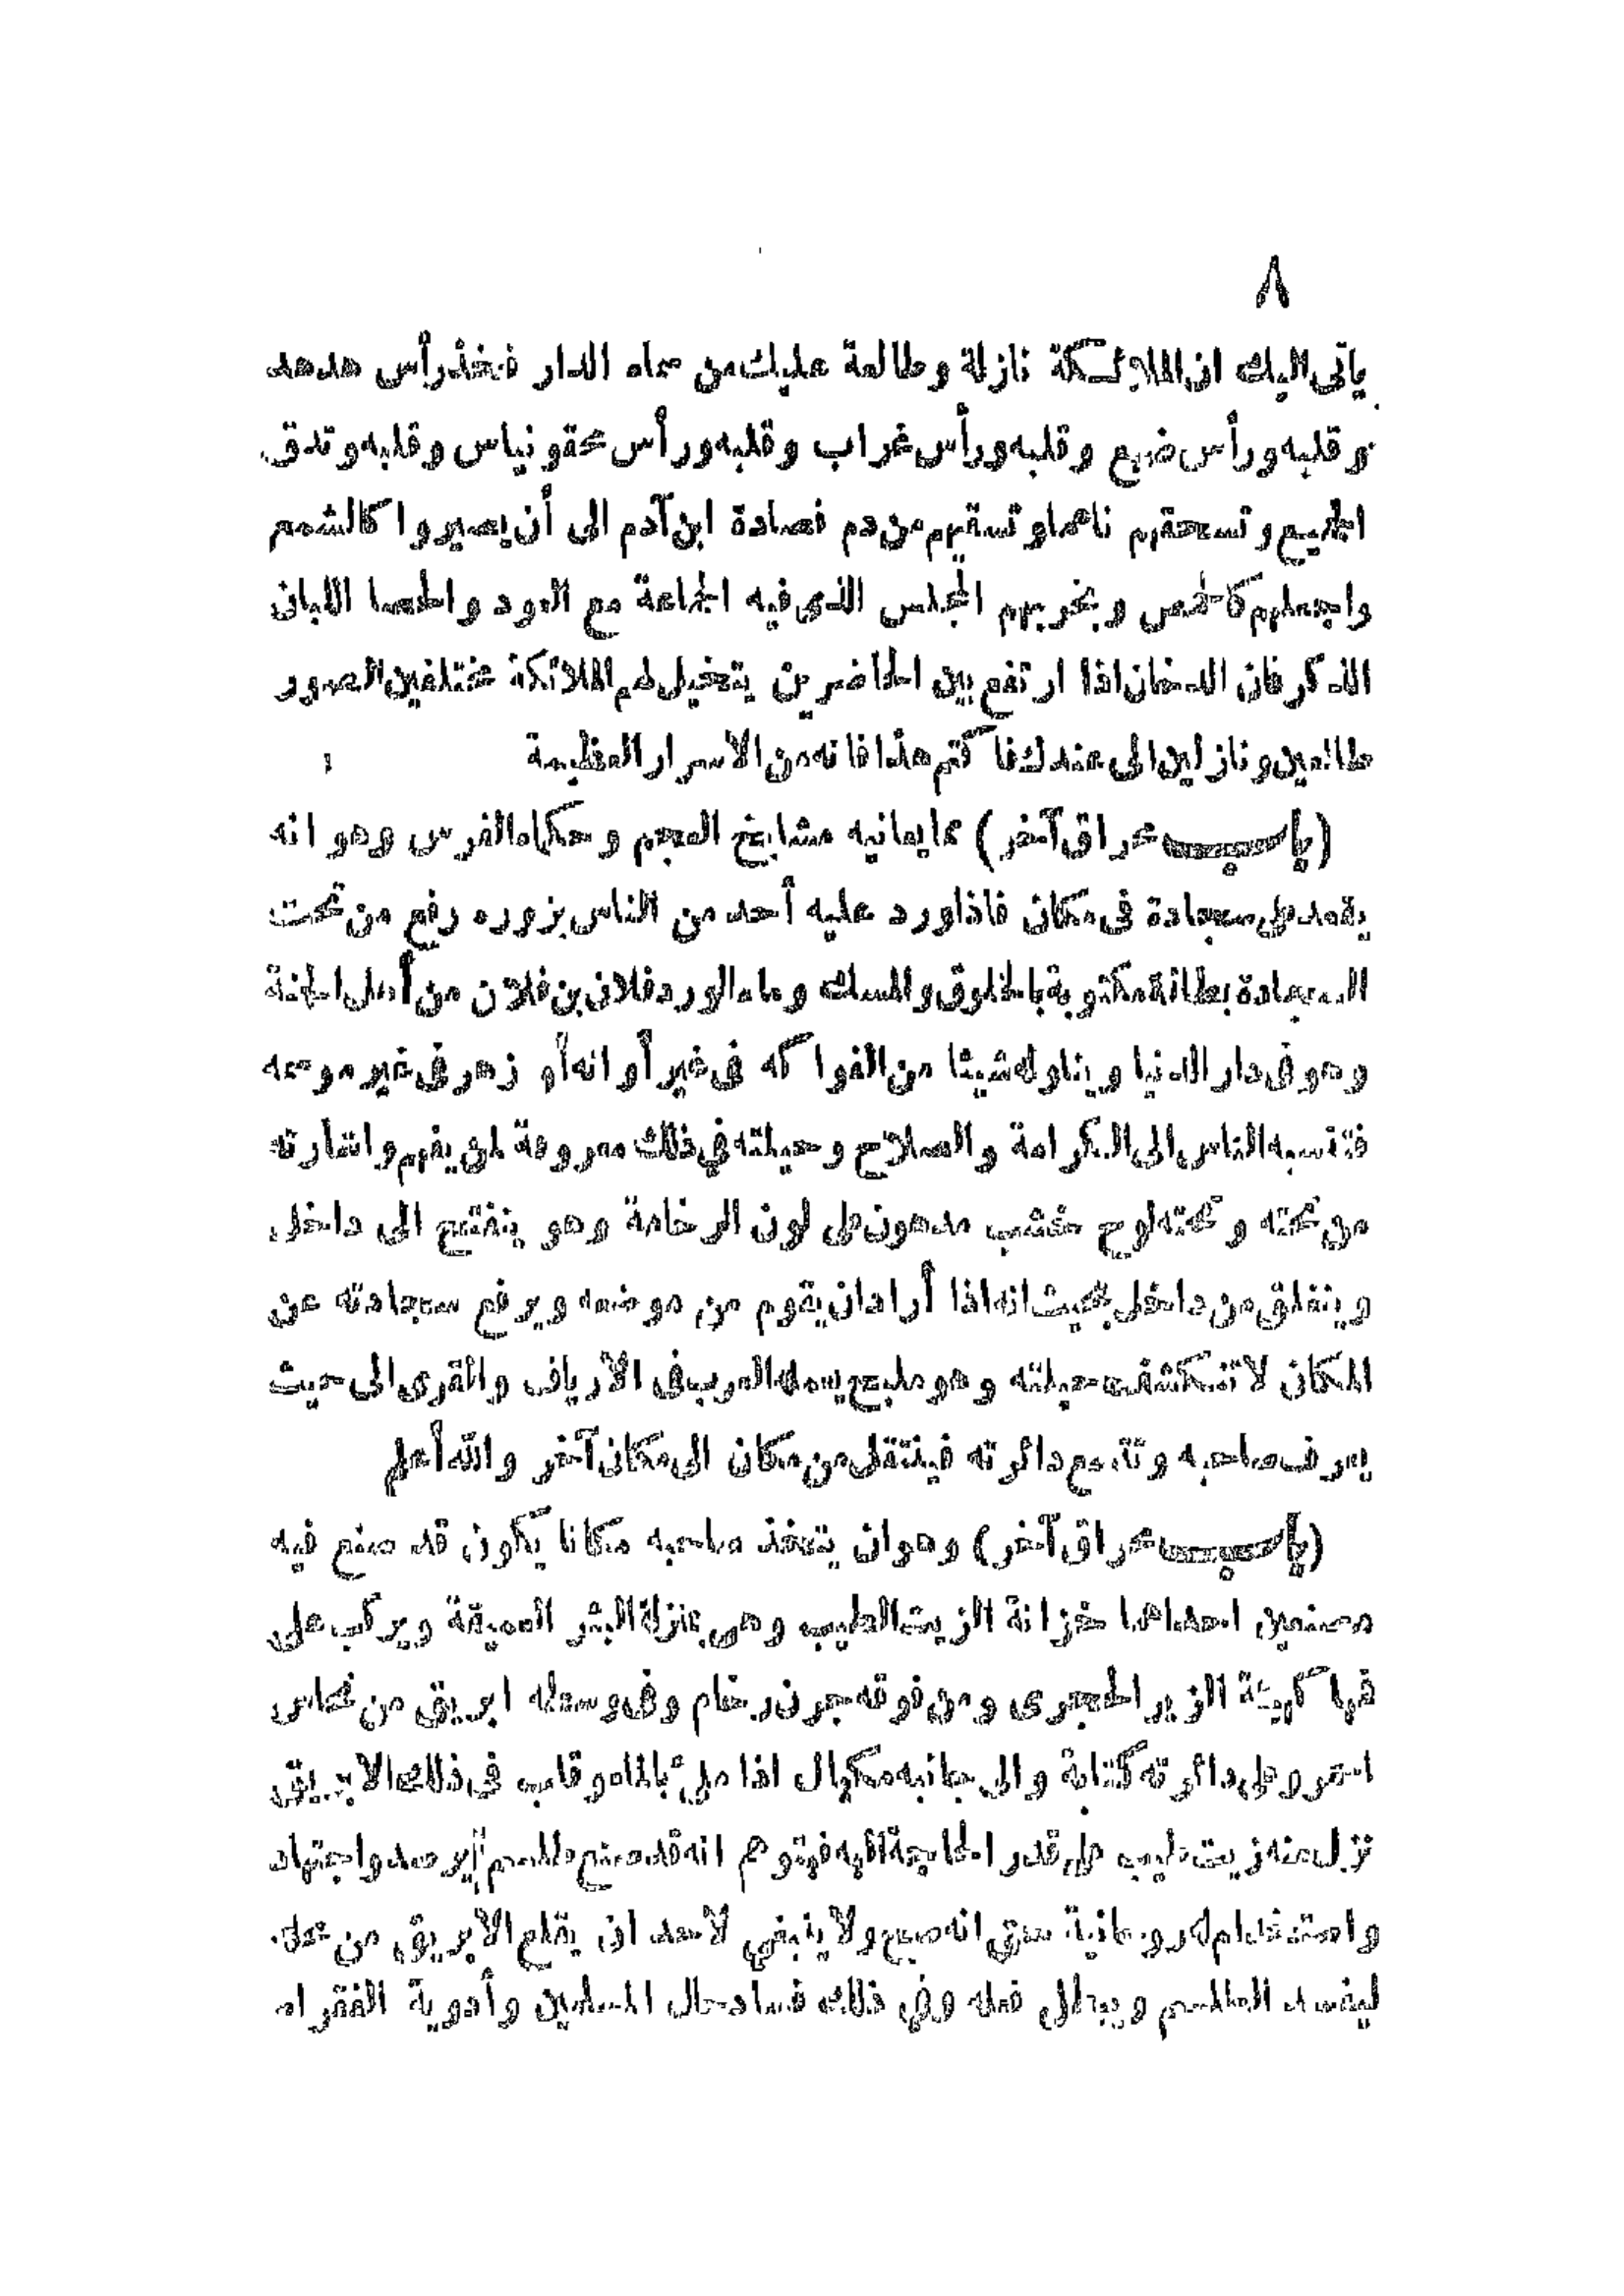 ٨
يأتى اليك ان الملائكة نازلة وطالعة عليك من سماء الدار فخذ رأس هدهد
وقلبه ورأس ضبع وقلبه ورأس غراب وقلبه ورأس وقلبه وتدق
الجميع وتسحقهم ناعما وتسقيهم من دم فصادة ابن آدم الى أن يصيروا كالشمع
واجعلهم كالحمص وبخر بهم المجلس الذى فيه الجماعة مع العود والحصا اللبان
الذكر فان الدخان اذا ارتفع بين الحاضرين يتخيل لهم الملائكة مختلفين الصور
طالعين ونازلين الى عندك فاكتم هذا فانه من الاسرار العظيمة
(باب حراق آخر) مما يعانيه مشايخ العجم وحكماء الفرس وهو انه
يقعد على سجادة فى مكان فاذا ورد عليه أحد من الناس يزوره رفع من تحت
السجادة بطاقة مكتوبة بالخلوق والمسك وماء الورد فلان بن فلان من أهل الجنة
وهو فى دار الدنيا ويناوله شيئا من الفواكه فى غير أوانه أو زهر فى غير موضعه
فتنسبه الناس الى الكرامة والصلاح وحيلته في ذلك معروفة لمن يفهم واشارته
من تحته وتحته لوح خشب مدهون على لون الرخامة وهو ينفتح الى داخل
وينغلق من داخل بحيث انه اذا أراد ان يقوم من موضعه ويرفع سجادته عن
المكان لا تنكشف حيلته وهو مليح يعمله العرب فى الأرياف والقرى الى حيث
يعرف صاحبه وتتسع دائرته فينتقل من مكان الى مكان آخر والله أعلم
(باب حراق آخر) وهو ان يتخذ صاحبه مكانا يكون قد صنع فيه
مصنعين احداهما خزانة الزيت الطيب وهى بمنزلة البئر العميقة ويركب على
فمها كهيئة الزير الحجرى ومن فوقه جرن رخام وفى وسطه ابريق من نحاس
احمر وعلى دائرته كتابة والى جانبه مكيال اذا ملئ بالماء وقلب فى ذلك الابريق
نزل منه زيت طيب على قدر الحاجة اليه فيتوهم انه قد صنع طلسم برصد واجتهاد
واستخدام له روحانية حتى انه صح ولا ينبغي لأحد ان يقلع الابريق من محله
ليفسد الطلسم ويبطل فعله وفى ذلك فساد حال المسلمين وأدوية الفقراء